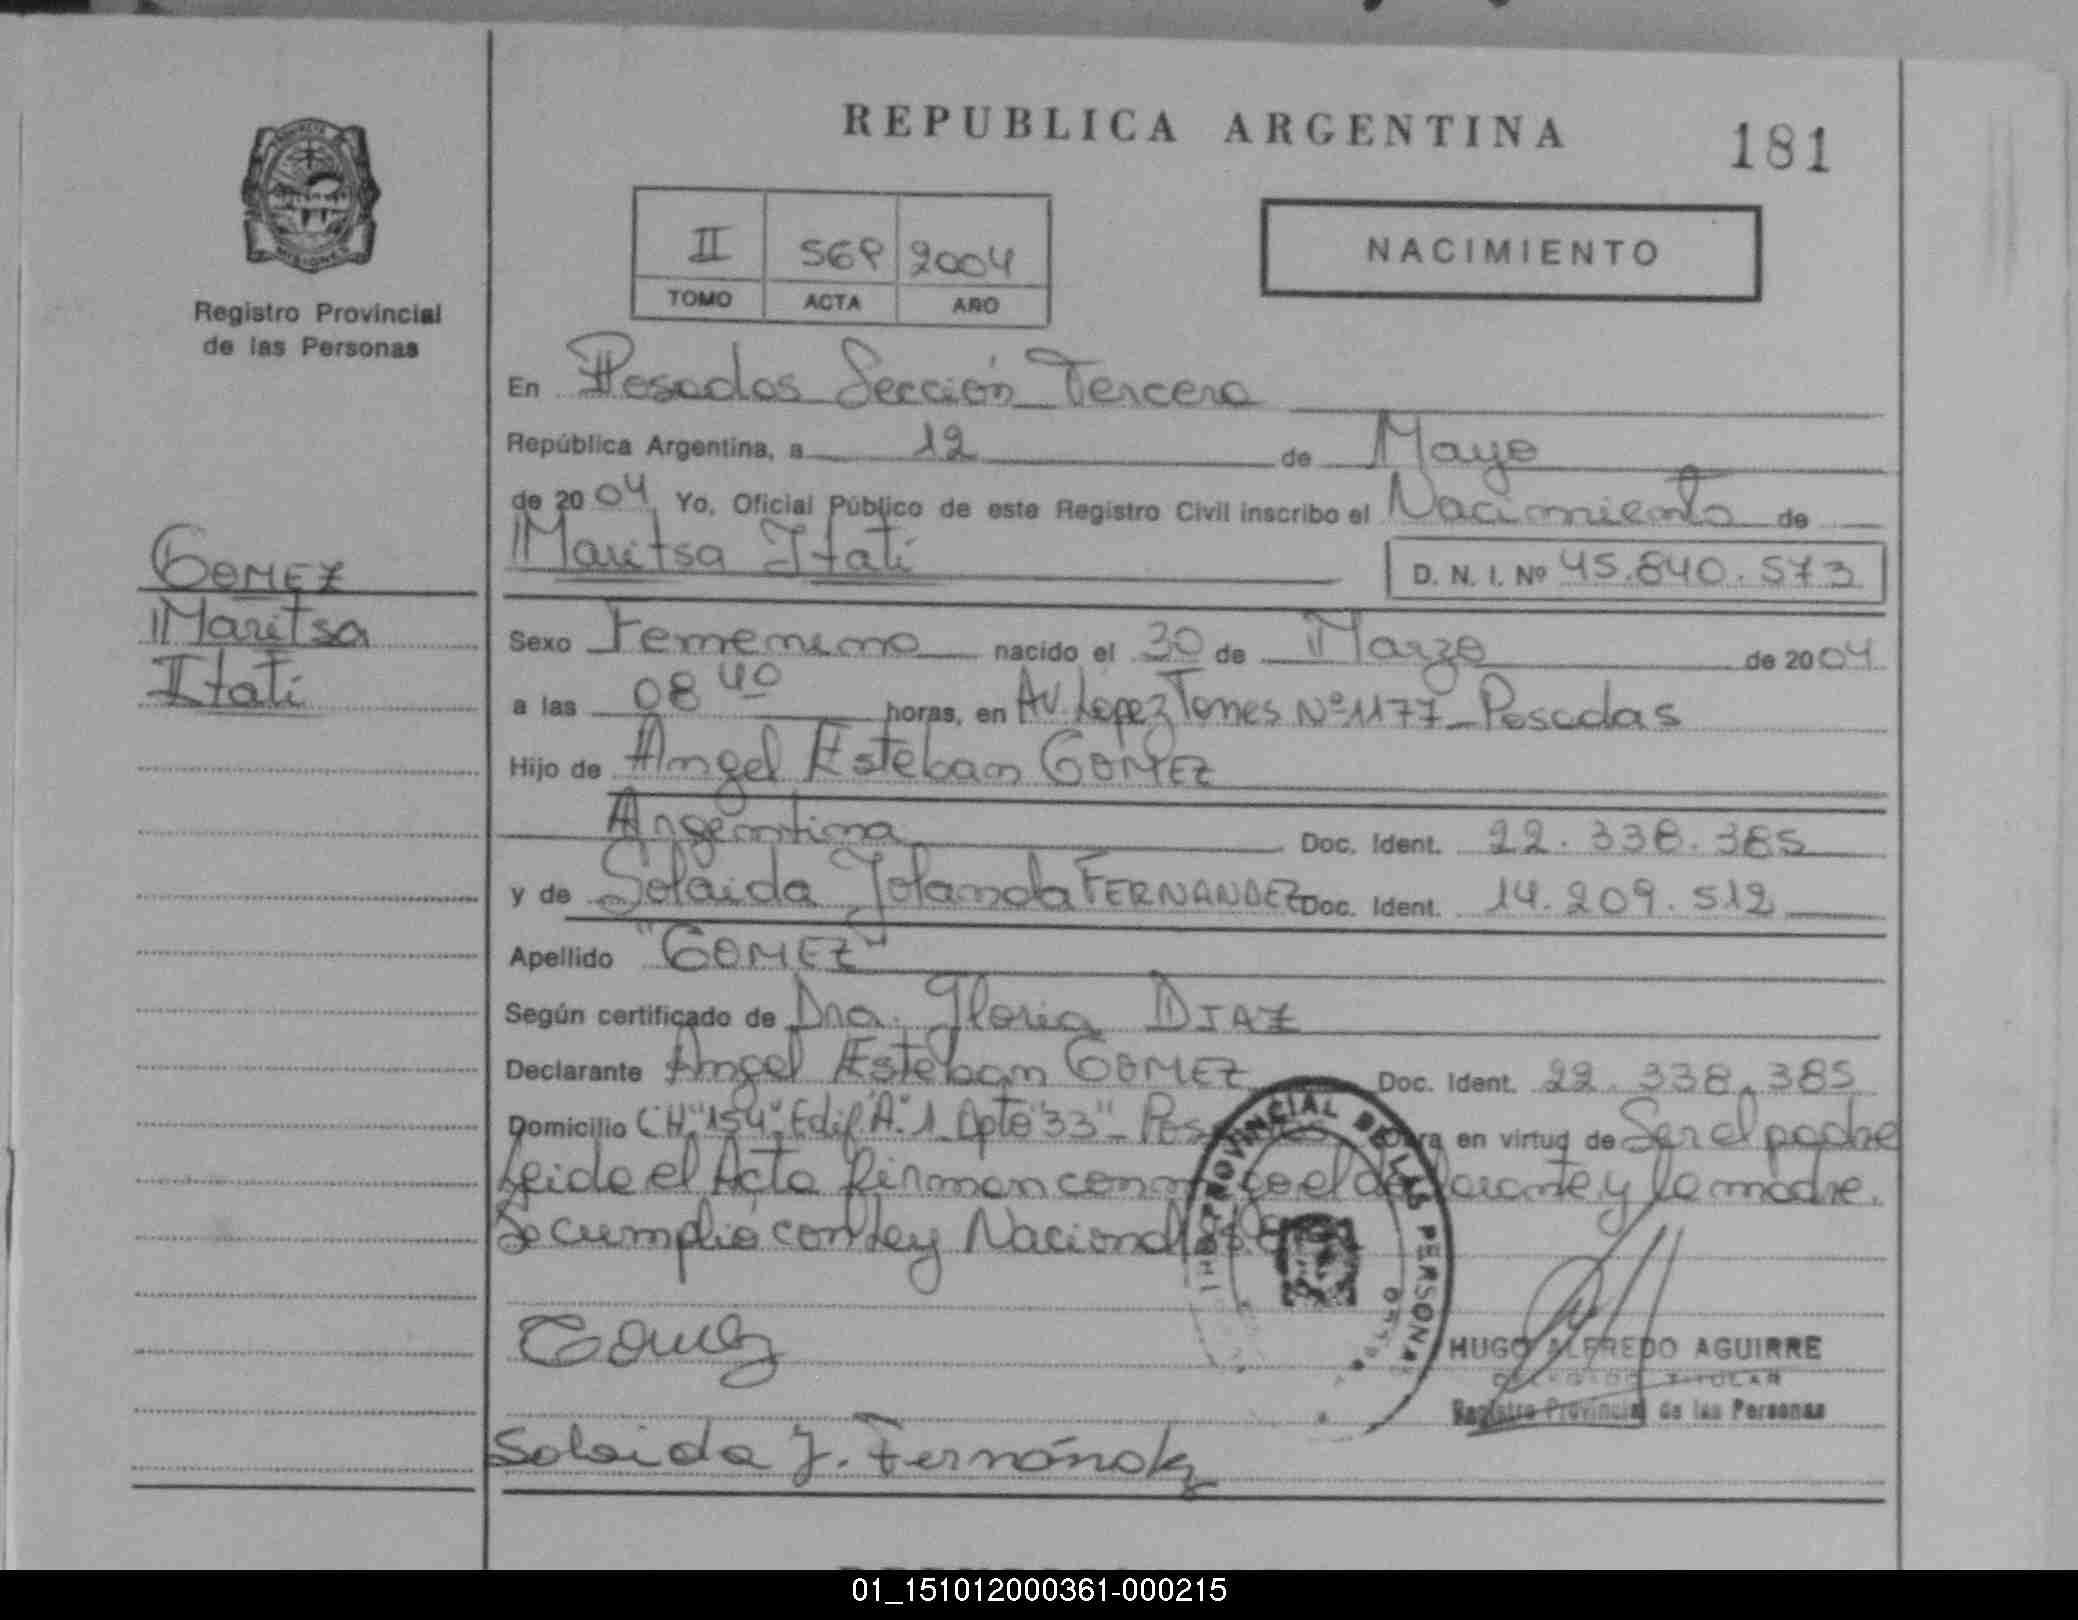 REPUBLICA ARGENTINA
181
II 569 2004
TOMO ACTA AÑO
NACIMIENTO
MISIONES
Registro Provincial
de las Personas
En Posadas Sección Tercera
República Argentina, a 12 de Mayo
de 2004 Yo, Oficial Público de este Registro Civil inscribo el Nacimiento de
Maritsa Itatí
D. N. I. Nº 45.840.573
GOMEZ
Maritsa
Itatí
Sexo Femenino nacido el 30 de Marzo de 2004
a las 08 40 horas, en Av. Lopez Torres Nº 1177 _ Posadas
Hijo de Angel Esteban GOMEZ
Argentina Doc. Ident. 22.338.385
y de Solaida Yolanda FERNANDEZ Doc. Ident. 14.209.512
Apellido "GOMEZ"
Según certificado de Dra. Gloria DIAZ
Declarante Angel Esteban GOMEZ Doc. Ident. 22.338.385
Domicilio CH "154" Edif "A" 1 Dpto "33" _ en virtud de Ser el padre
Leida el Acta firman y la madre.
Se cumplió con Ley Nacional
PROVINCIAL DE LAS PERSONAS
Gomez
HUGO ALFREDO AGUIRRE
DELEGADO TITULAR
Registro Provincial de las Personas
Solaida Y. Fernández
01_151012000361-000215